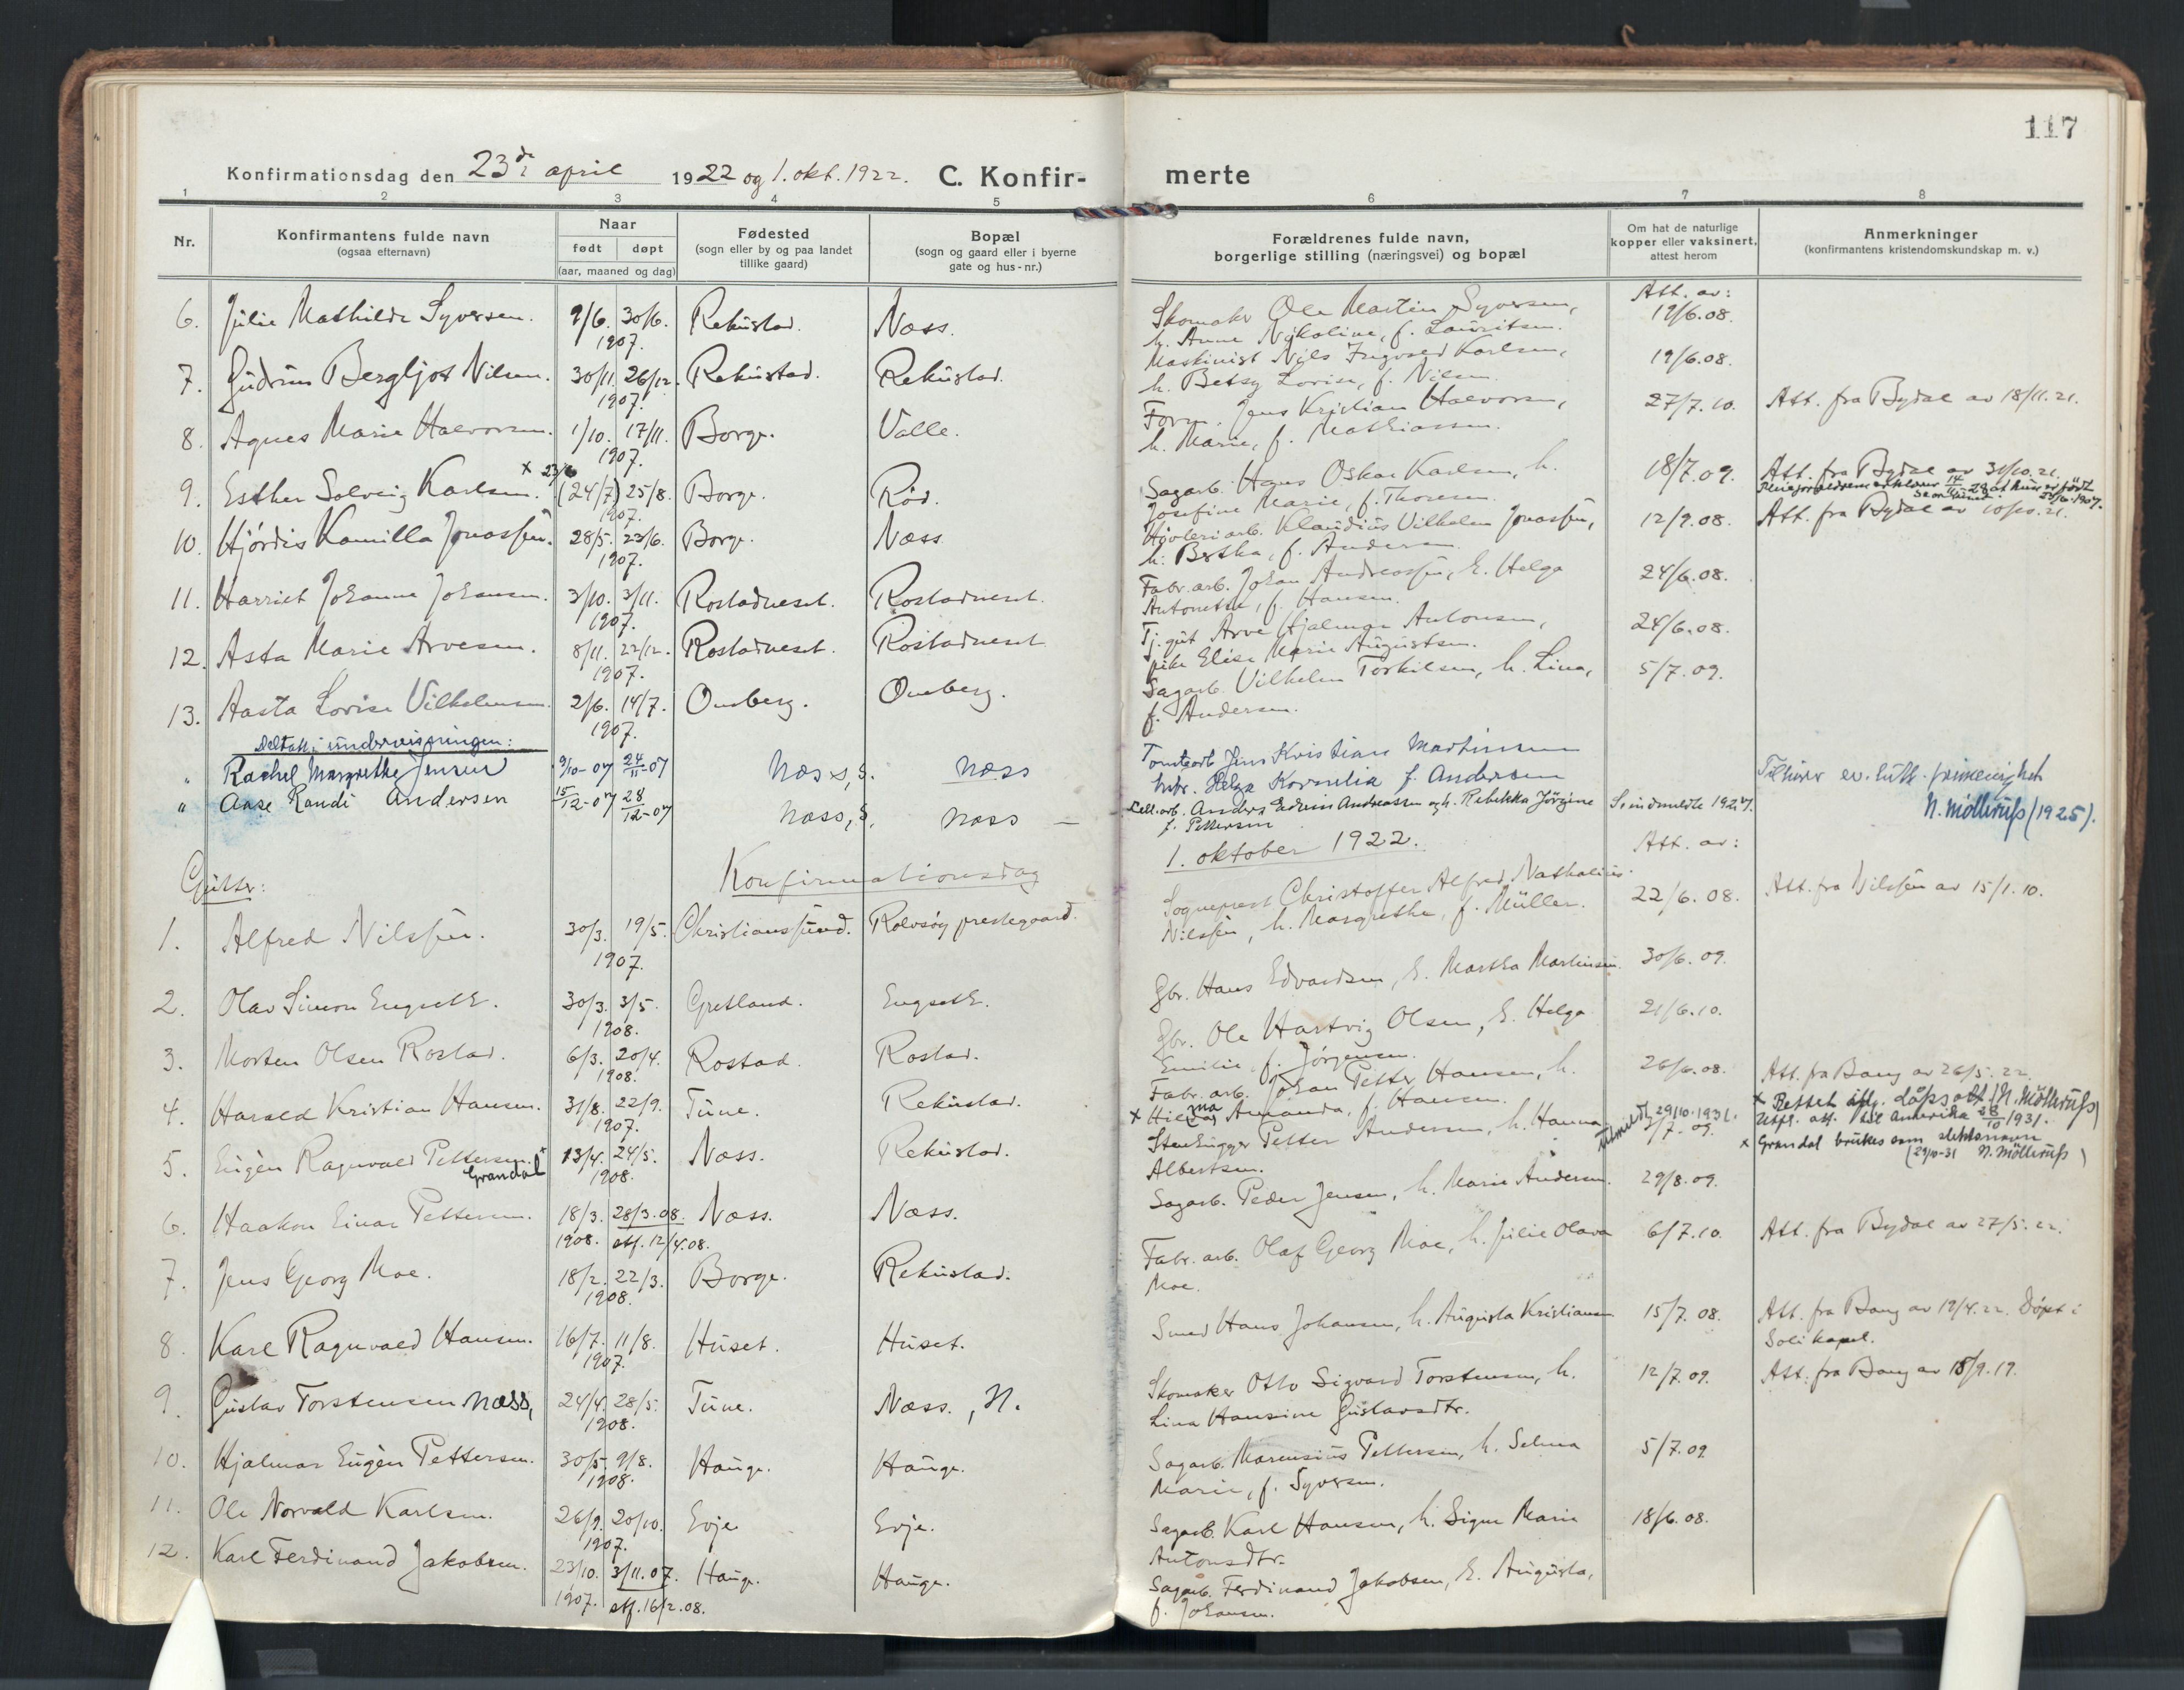 117
Konfirmationsdag den 23de april 1922 og 1. okt. 1922. C. Konfir-merte
1 2 3 4 5 6 7 8
Nr.
Konfirmantens fulde navn
(ogsaa efternavn)
Naar
født døpt
(aar, maaned og dag)
Fødested
(sogn eller by og paa landet
tillike gaard)
Bopæl
(sogn og gaard eller i byerne
gate og hus-nr.)
Forældrenes fulde navn,
borgerlige stilling (næringsvei) og bopæl
Om hat de naturlige
kopper eller vaksinert,
attest herom
Anmerkninger
(konfirmantens kristendomskundskap m. v.)
Att. av:
6. Julie Mathilde Syversen. 9/6. 30/6. Rekustad. Næss. Skomaker Ole Martin Syversen, 19/6.08.
1907. h. Anne Nikoline, f. Lauritsen.
7. Gudrun Bergljot Nilsen. 30/11. 26/12. Rekustad. Rekustad. Maskinist Nils Ingvald Karlsen, 19/6.08.
1907. h. Betsy Lovise, f. Nilsen.
8. Agnes Marie Halvorsen. 1/10. 17/11. Borge. Valle. Form. Jens Kristian Halvorsen, 27/7.10. Att. fra Bydal av 18/11.21.
1907. h. Marie, f. Mathiassen.
x 23/6
9. Esther Solveig Karlsen. (24/7) 25/8. Borge. Rød. Sagarb. Hans Oskar Karlsen, h. 18/7.09. Att. fra Bydal av 31/10.21.
1907. Josefine Marie, f. Thoresen.
10. Hjördis Kamilla Jonassen. 28/5. 23/6. Borge. Næss. Høvleriarb. Klaudius Vilhelm Jonassen, 12/9.08. Att. fra Bydal av 10/10.21.
1907. h. Bertha, f. Andersen.
11. Harriet Johanne Johansen. 3/10. 3/11. Rostadneset. Rostadneset. Fabr.arb. Johan Andreassen, h. Helga 24/6.08.
1907. Antonette, f. Hansen.
12. Asta Marie Arvesen. 8/11. 22/12. Rostadneset. Rostadneset Tj.gut Arve Hjalmar Antonsen, 24/6.08.
1907. pike Elise Marie Augustsen.
13. Aasta Lovise Vilhelmsen 2/6. 14/7. Omberg. Omberg. Sagarb. Vilhelm Torkilsen, h. Lina, 5/7.09.
1907. f. Andersen.
Deltatt i undervisningen:
" Rachel Margrethe Jensen 9/10-07 24/11-07 Næss, S. Næss Tomtearb Jens Kristian Martinsen
htr. Helga Kornelia f. Andersen
Tilhører ev. luth. frimenighet
N. Møllerup (1925).
" Aase Randi Andersen 15/12-07 28/12-07 Næss, S. Næss — Cell.arb. Anders Edvin Andreassen og h. Rebekka Jørgine
f. Pettersen
Gutter: Konfirmationsdag 1. oktober 1922. Att. av:
1. Alfred Nilssen. 30/3. 19/5. Christianssund. Rolvsøy prestegaard. Sogneprest Christoffer Alfred Nathalius 22/6.08. Att. fra Nilssen av 15/1.10.
1907. Nilssen, h. Margrethe, f. Müller.
2. Olav Simon Engseth. 30/3. 3/5. Gretland. Engseth. Gbr. Hans Edvardsen, h. Martha Martinsen. 30/6.09.
1908.
3. Morten Olsen Rostad. 6/3. 20/4. Rostad. Rostad. Gbr. Ole Hartvig Olsen, h. Helga 21/6.10.
1908. Emilie, f. Jörgensen.
4. Harald Kristian Hansen. 31/8. 22/9. Tune. Rekustad. Fabr.arb. Johan Petter Hansen, h. 26/6.08. Att. fra Bang av 26/5.22.
1907. x Hilma Amanda, f. Hansen.
x Rettet iflg. dåpsatt. (N. Møllerup)
5. Eugèn Ragnvald Pettersen. x 13/4. 24/5. Næss. Rekustad. Stenhugger Petter Andersen, h. Hanna 2/7.09. Utst. att. til Amerika 28/10 1931.
Grandal 1908. Albertsen.
29/10.1931.
x Grandal brukes som slektsnavn
(29/10-31 N. Møllerup)
6. Haakon Einar Pettersen. 18/3. 28/3.08. Næss. Næss. Sagarb. Peder Jensen, h. Marie Andersen. 29/8.09.
1908. stf. 12/4.08.
7. Jens Georg Moe. 18/2. 22/3. Borge. Rekustad. Fabr.arb. Olaf Georg Moe, h. Julie Olava 6/7.10. Att. fra Bydal av 27/5.22.
1908. Moe.
8. Karl Ragnvald Hansen. 16/7. 11/8. Huset. Huset. Smed Hans Johansen, h. Augusta Kristiansen 15/7.08. Att. fra Bang av 19/4.22. Døpt i
1907. Soli kapel.
9. Gustav Torstensen Næss, 24/4. 28/5. Tune. Næss., N. Skomaker Otto Sigvard Torstensen, h. 12/7.09. Att. fra Bang av 18/9.19.
1908. Lina Hansine Gustavsdtr.
10. Hjalmar Eugèn Pettersen. 30/5. 9/8. Hauge. Hauge. Sagarb. Marensius Pettersen, h. Selma 5/7.09
1908. Marie, f. Syversen.
11. Ole Norvald Karlsen. 26/9. 20/10. Evje Evje. Sagarb. Karl Hansen, h. Signe Marie 18/6.08.
1907. Antonsdtr.
12. Karl Ferdinand Jakobsen. 23/10. 3/11.07. Hauge. Hauge. Sagarb. Ferdinand Jakobsen, h. Augusta,
1907. stf. 16/2.08. f. Johansen.